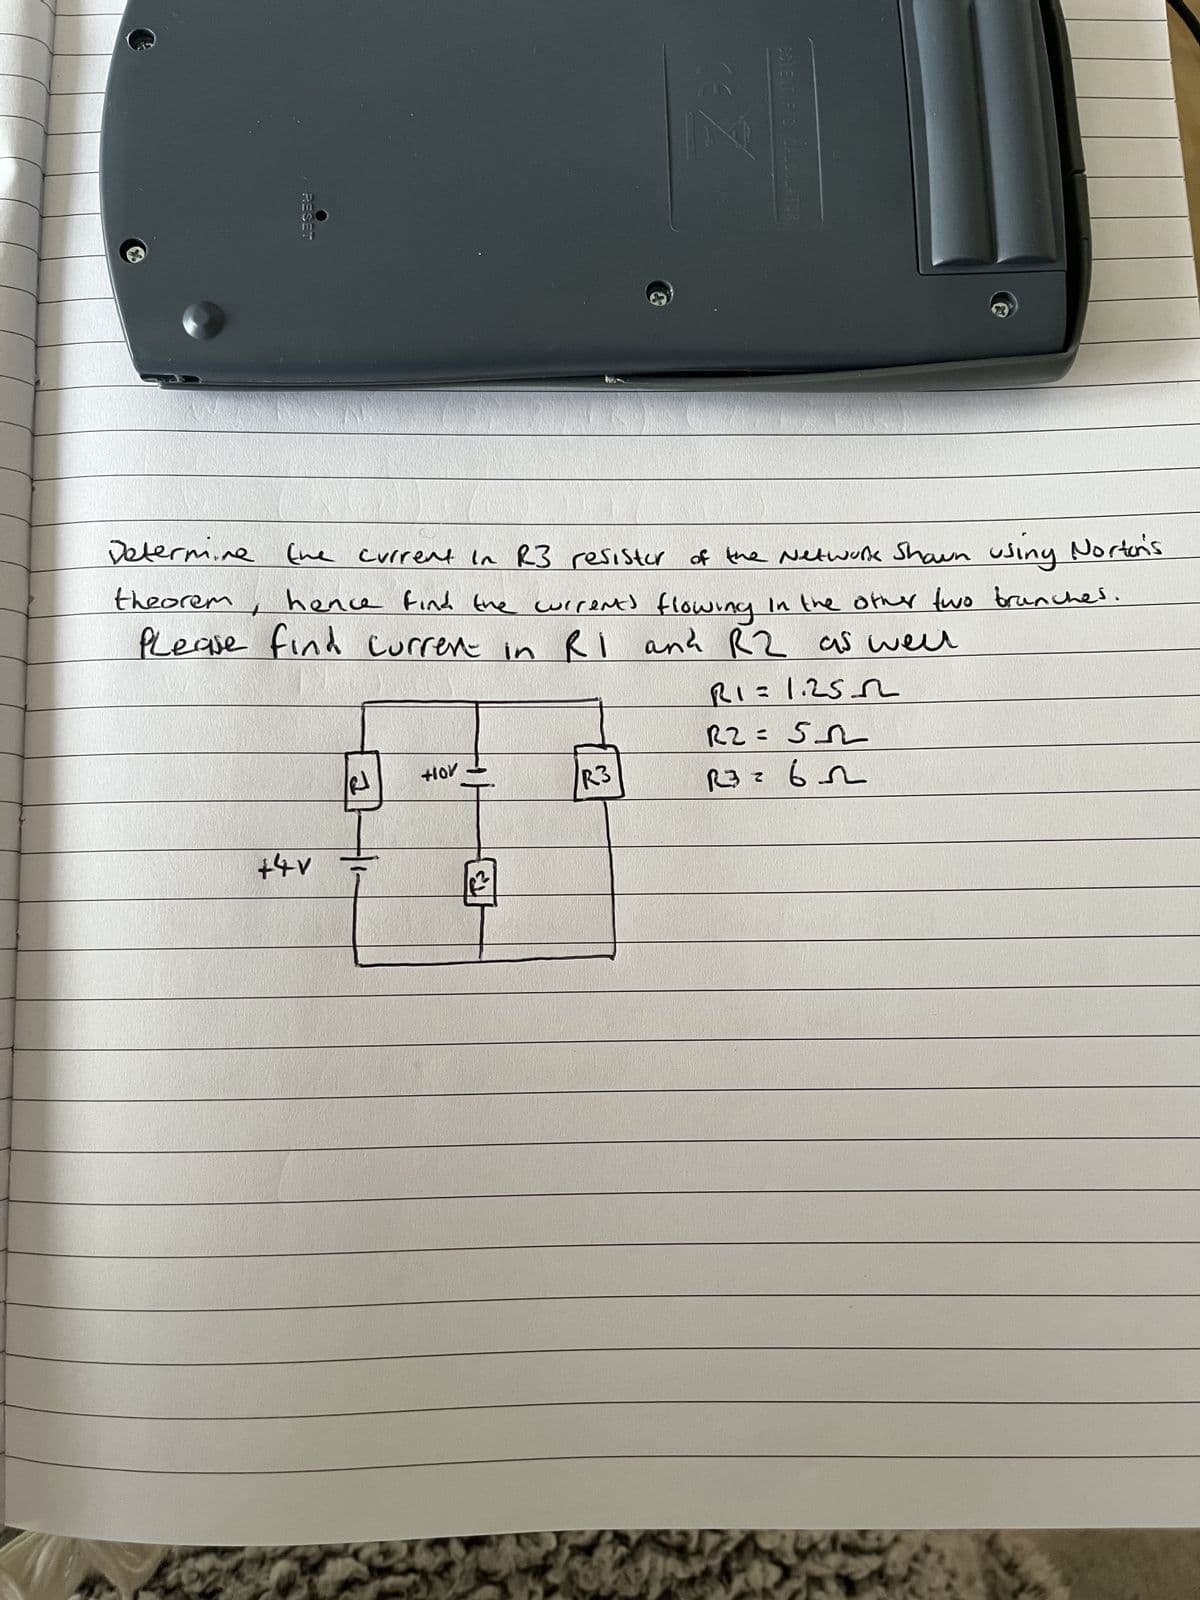 RESET
Determine the current in R3 resistor of the Network Shown using Norton's
theorem, hence find the currents flowing in the other two branches.
Please find current in R1 and R2 as well
R1 = 1.25 Ω
R2 = 5 Ω
R3 = 6 Ω
R1
+10V
R3
+4V
R2